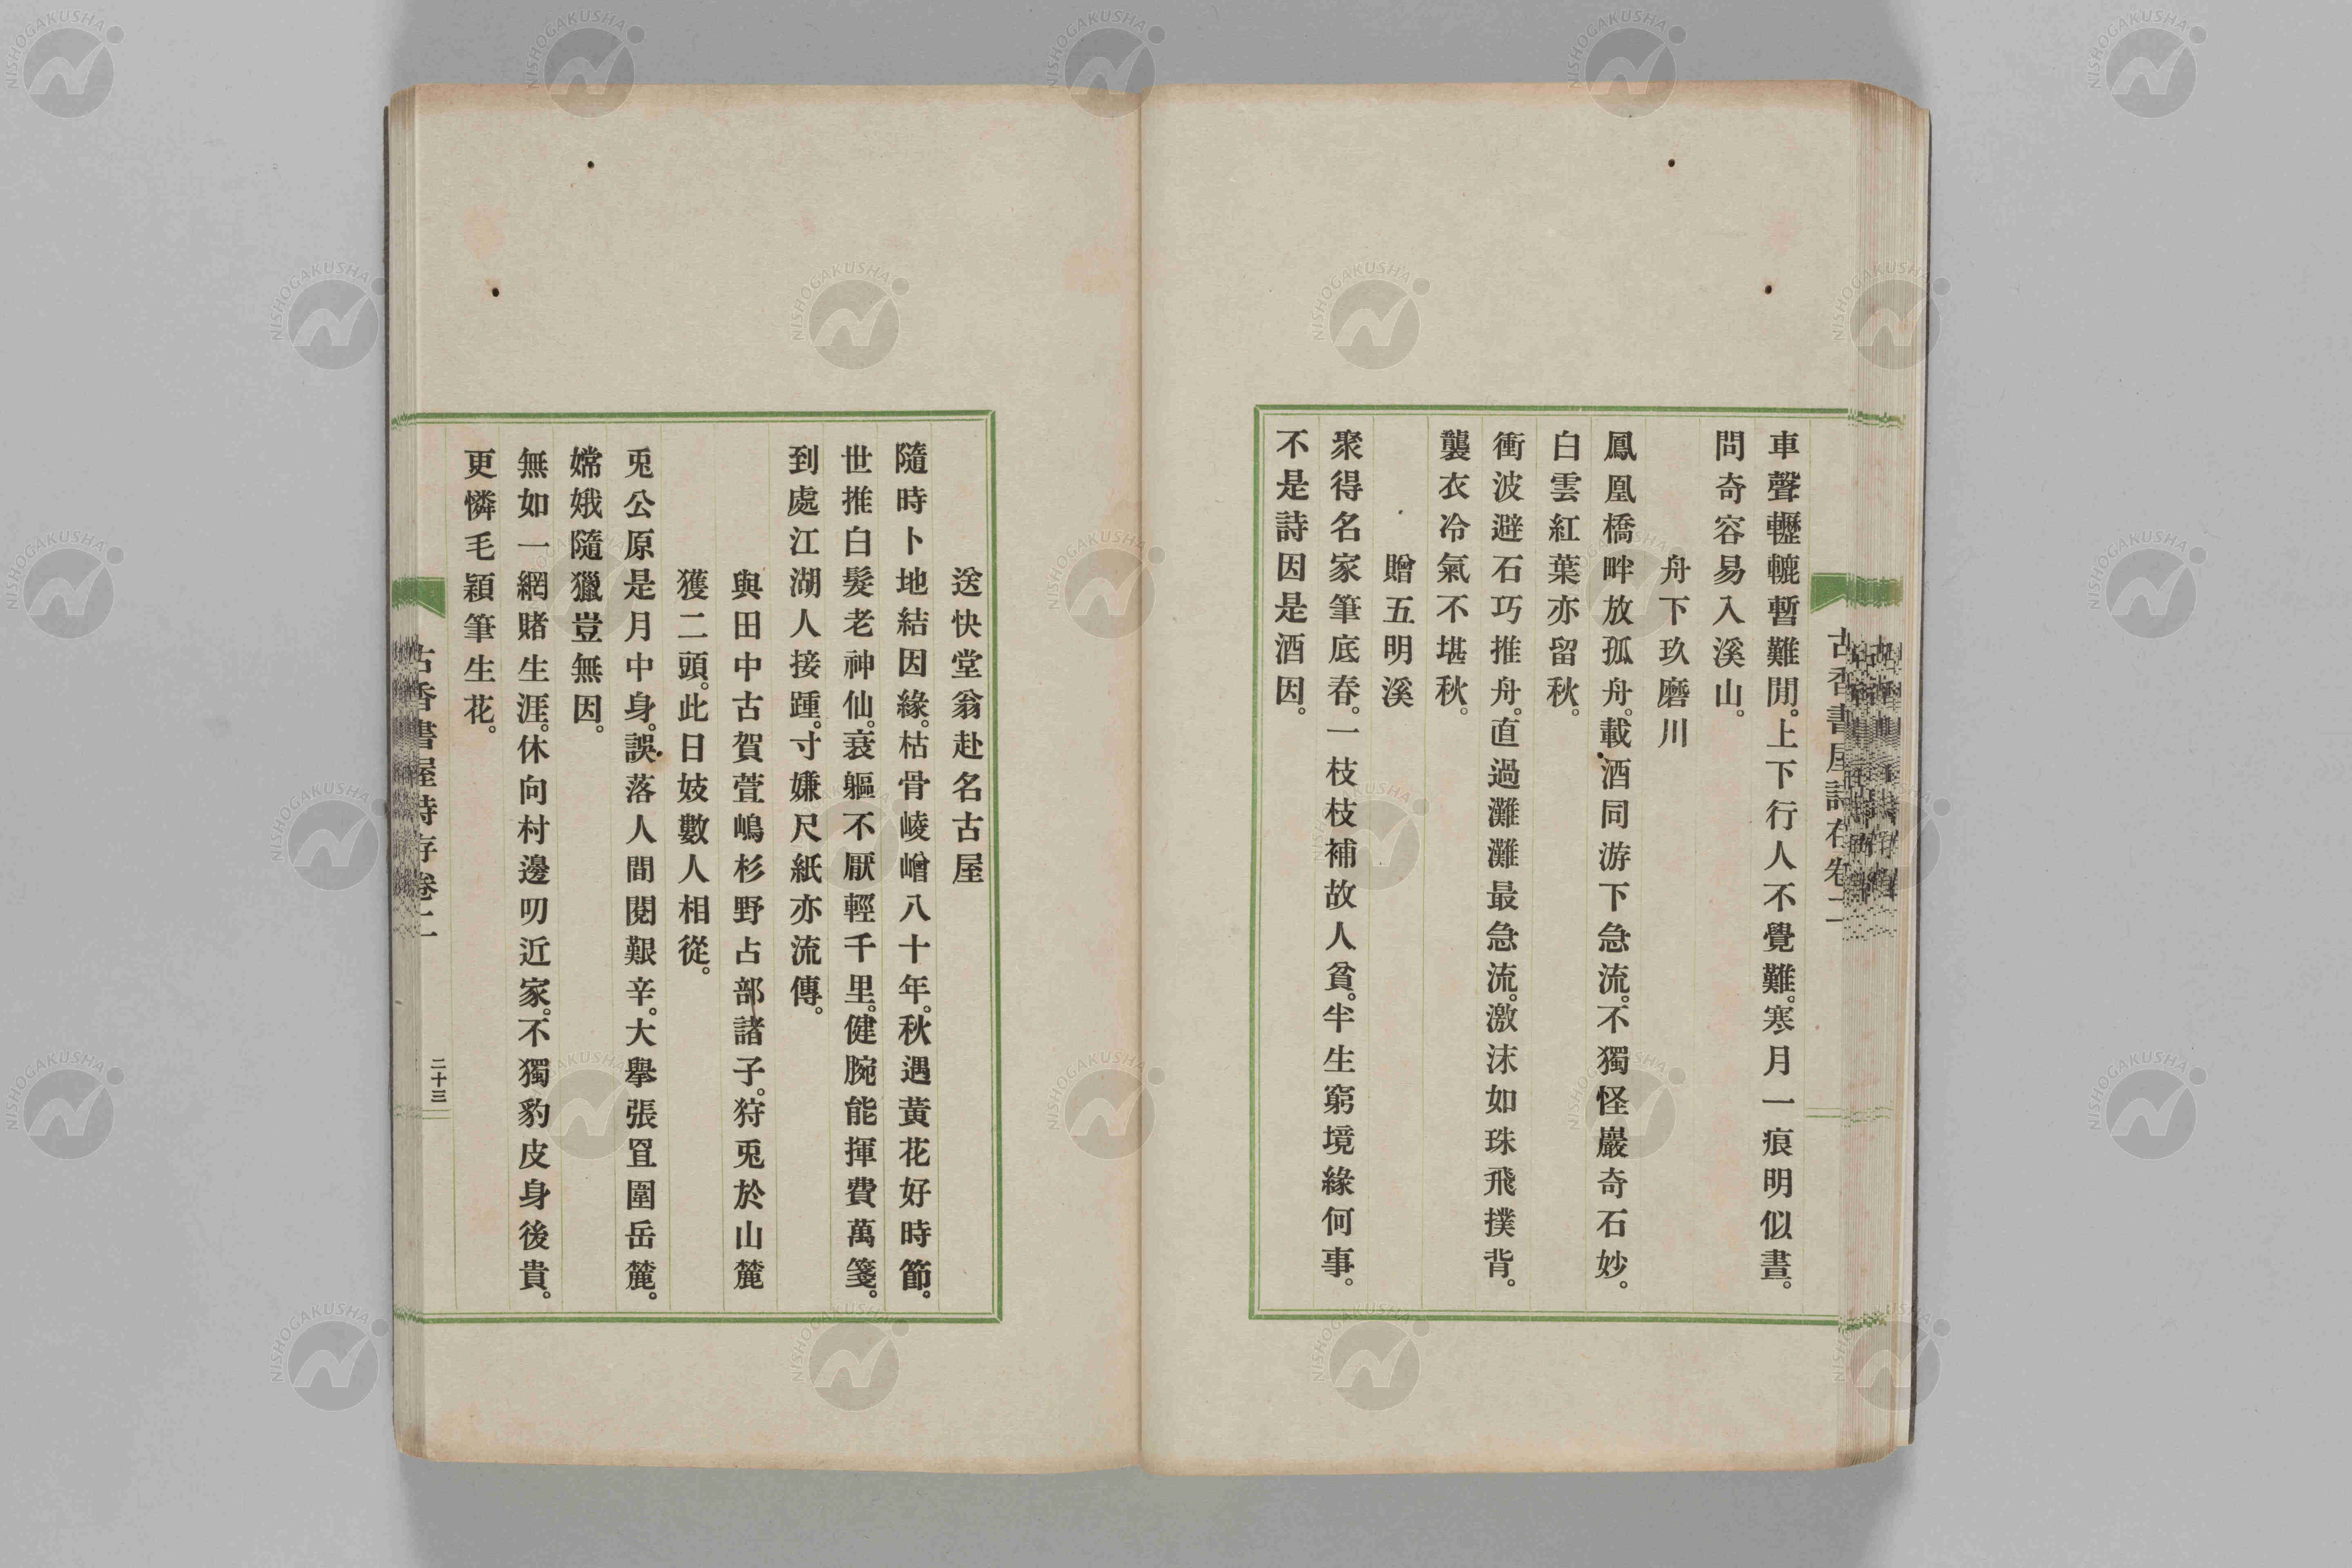 車聲轣轆暫難閒。上下行人不覺難。寒月一痕明似晝。
問奇容易入溪山。
舟下玖磨川
鳳凰橋畔放孤舟。載酒同游下急流。不獨怪巖奇石妙。
白雲紅葉亦留秋。
衝波避石巧推舟。直過灘灘最急流。激沫如珠飛撲背。
襲衣冷氣不堪秋。
贈五明溪
聚得名家筆底春。一枝枝補故人貧。半生窮境緣何事。
不是詩因是酒因。
送快堂翁赴名古屋
隨時卜地結因緣。枯骨崚嶒八十年。秋遇黃花好時節。
世推白髮老神仙。衰軀不厭輕千里。健腕能揮費萬箋。
到處江湖人接踵。寸嫌尺紙亦流傳。
與田中古賀萱嶋杉野占部諸子。狩兎於山麓
獲二頭。此日妓數人相從。
兎公原是月中身。誤落人間閱艱辛。大擧張罝圍岳麓。
嫦娥隨獵豈無因。
無如一網賭生涯。休向村邊叨近家。不獨豹皮身後貴。
更憐毛穎筆生花。
古香書屋詩存卷二
二十三
NISHOGAKUSHA